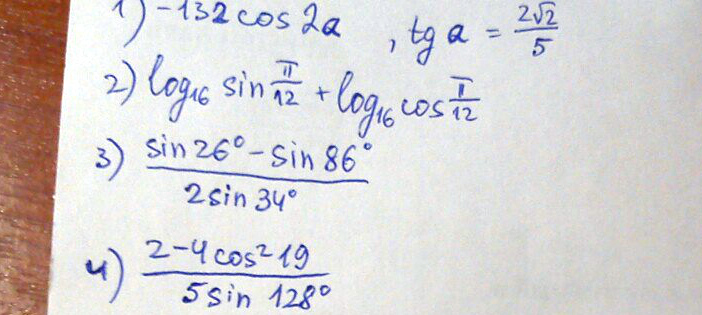 1) -132 cos 2a , tg a = 2√2/5
2) log₁₆ sin π/12 + log₁₆ cos π/12
3) (sin 26° - sin 86°)/(2 sin 34°)
4) (2-4cos²19)/(5 sin 128°)